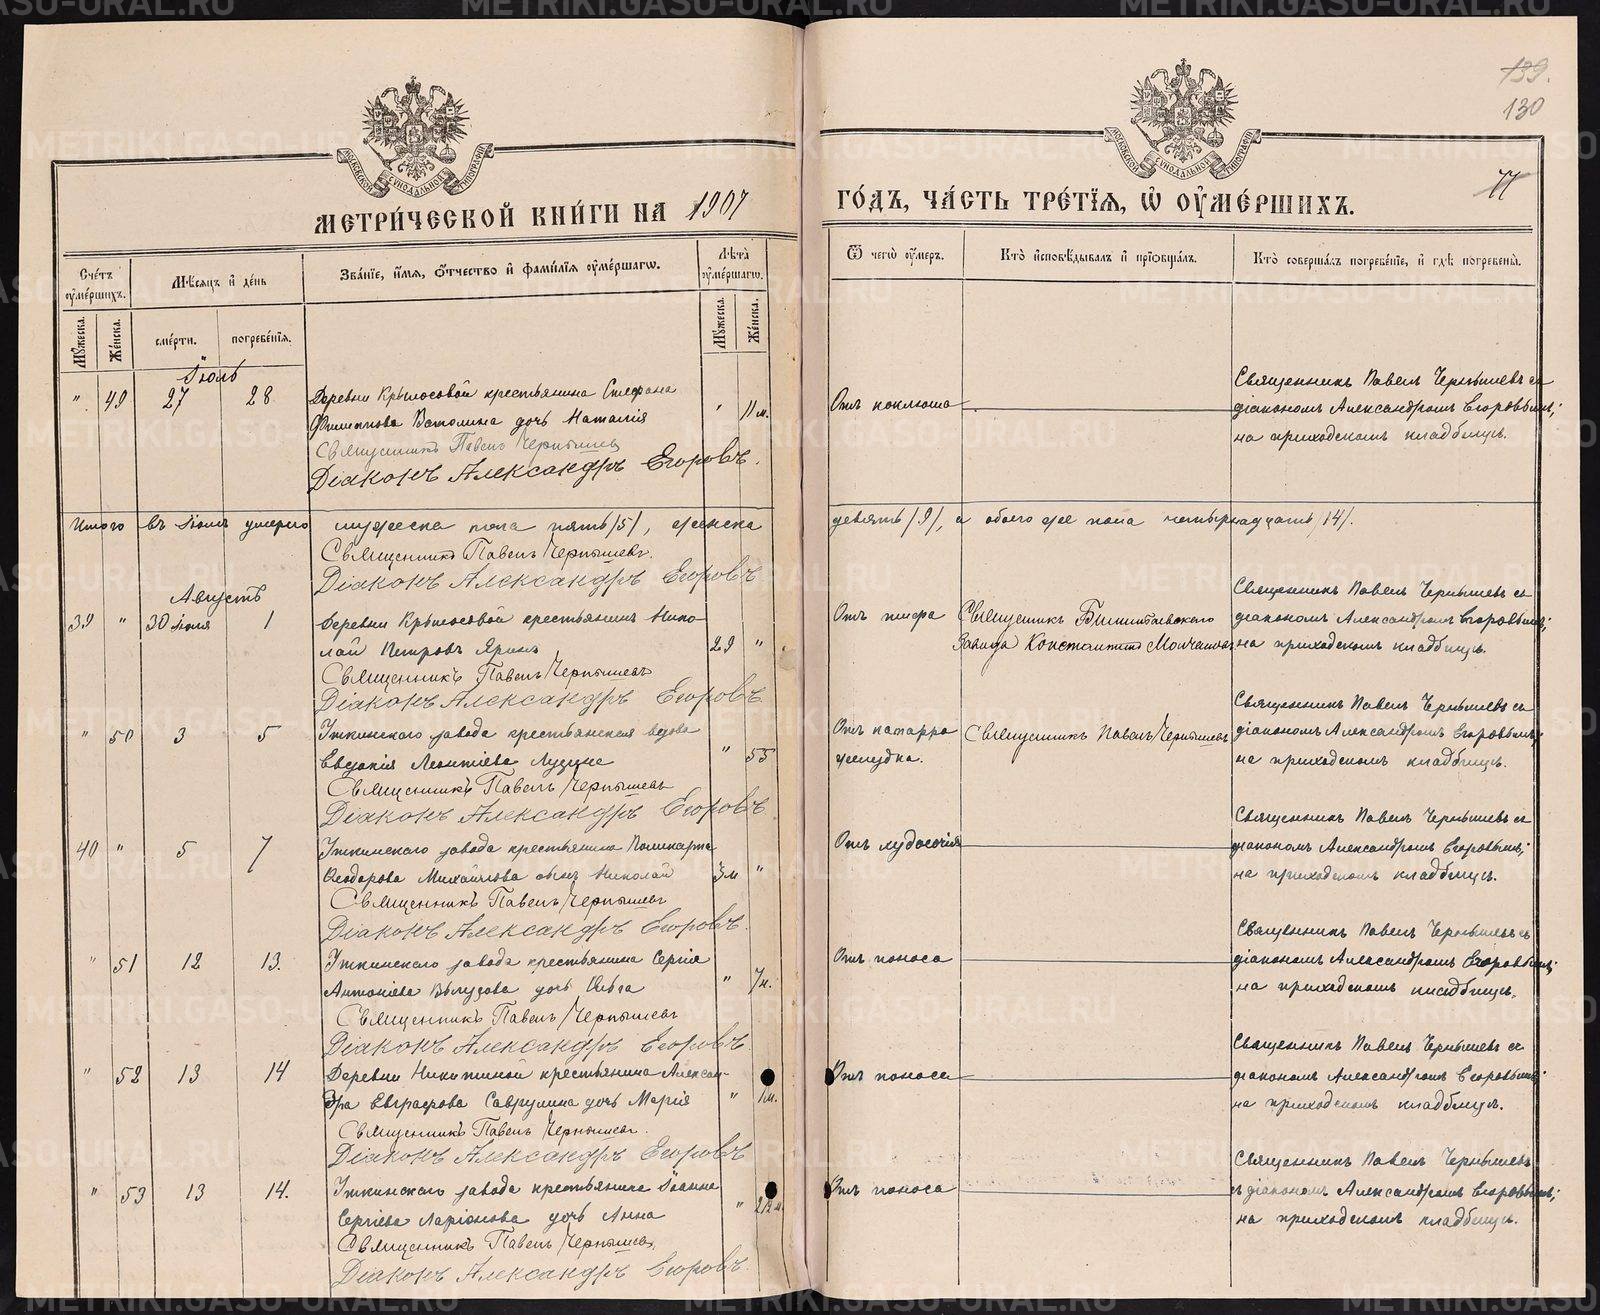 139.
130
77
МОСКОВСКОЙ СѴНОДАЛЬНОЙ ТИПОГРАФІИ
МОСКОВСКОЙ СѴНОДАЛЬНОЙ ТИПОГРАФІИ
МЕТРИ́ЧЕСКОЙ КНИ́ГИ НА 1907
ГО́ДЪ, ЧА́СТЬ ТРЕ́ТІѦ, Ѡ҆ ОУ҆МЕ́РШИХЪ.
Сче́тъ оу҆ме́ршихъ.
Мѣ́сяцъ и҆ де́нь
Зва́нїе, и҆́мѧ, ѻ҆́тчество и҆ фами́лїѧ оу҆ме́ршагѡ.
Лѣ́та оу҆ме́ршагѡ.
Ѿ чегѡ̀ оу҆́меръ.
Кто̀ и҆сповѣ́дывалъ и҆ прїѡбща́лъ.
Кто̀ соверша́лъ погребе́нїе, и҆ гдѣ̀ погребены̀.
Мꙋ́жеска. Же́нска. сме́рти. погребе́нїѧ. Мꙋ́жеска. Же́нска.
Іюль
" 49 27 28 Деревни Крылосовой крестьянина Стефана
Филиппова Ватолина дочь Наталія " 11 м.
Священникъ Павелъ Чернышевъ
Діаконъ Александръ Егоровъ.
Отъ коклюша
Священникъ Павелъ Чернышевъ съ
діакономъ Александромъ Егоровымъ;
на приходскомъ кладбищѣ.
Итого въ Іюлѣ умерло мужеска пола пять /5/, женска девять /9/, а обоего же пола четырнадцать /14/.
Священникъ Павелъ Чернышевъ.
Діаконъ Александръ Егоровъ
Августъ
39 " 30 Іюля 1 Деревни Крылосовой крестьянинъ Нико-
лай Петровъ Яринъ 29 "
Священникъ Павелъ Чернышевъ
Діаконъ Александръ Егоровъ
Отъ тифа
Священникъ Билимбаевскаго
Завода Константинъ
Священникъ Павелъ Чернышевъ съ
діакономъ Александромъ Егоровымъ;
на приходскомъ кладбищѣ.
" 50 3 5 Уткинскаго завода крестьянская вдова
Евдокія Леонтіева " 55
Священникъ Павелъ Чернышевъ
Діаконъ Александръ Егоровъ
Отъ катарра
желудка.
Священникъ Павелъ Чернышевъ
Священникъ Павелъ Чернышевъ съ
діакономъ Александромъ Егоровымъ;
на приходскомъ кладбищѣ.
40 " 5 7 Уткинскаго завода крестьянина Поликарпа
Ѳеодорова Михайлова сынъ Николай 3 м "
Священникъ Павелъ Чернышевъ
Діаконъ Александръ Егоровъ.
Отъ худосочія
Священникъ Павелъ Чернышевъ съ
діакономъ Александромъ Егоровымъ;
на приходскомъ кладбищѣ.
" 51 12 13. Уткинскаго завода крестьянина Сергія
Антоніева дочь Ольга "
Священникъ Павелъ Чернышевъ
Діаконъ Александръ Егоровъ.
Отъ поноса
Священникъ Павелъ Чернышевъ съ
діакономъ Александромъ Егоровымъ;
на приходскомъ кладбищѣ.
" 52 13 14 Деревни Никитиной крестьянина Алексан-
дра Евграфова Саврулина дочь Марія " 1 м.
Священникъ Павелъ Чернышевъ.
Діаконъ Александръ Егоровъ
Отъ поноса
Священникъ Павелъ Чернышевъ съ
діакономъ Александромъ Егоровымъ;
на приходскомъ кладбищѣ.
" 53 13 14. Уткинскаго завода крестьянина Іоанна
Сергіева Ларіонова дочь Анна "
Священникъ Павелъ Чернышевъ.
Діаконъ Александръ Егоровъ.
Отъ поноса
Священникъ Павелъ Чернышевъ
съ діакономъ Александромъ Егоровымъ;
на приходскомъ кладбищѣ.
METRIKI.GASO-URAL.RU